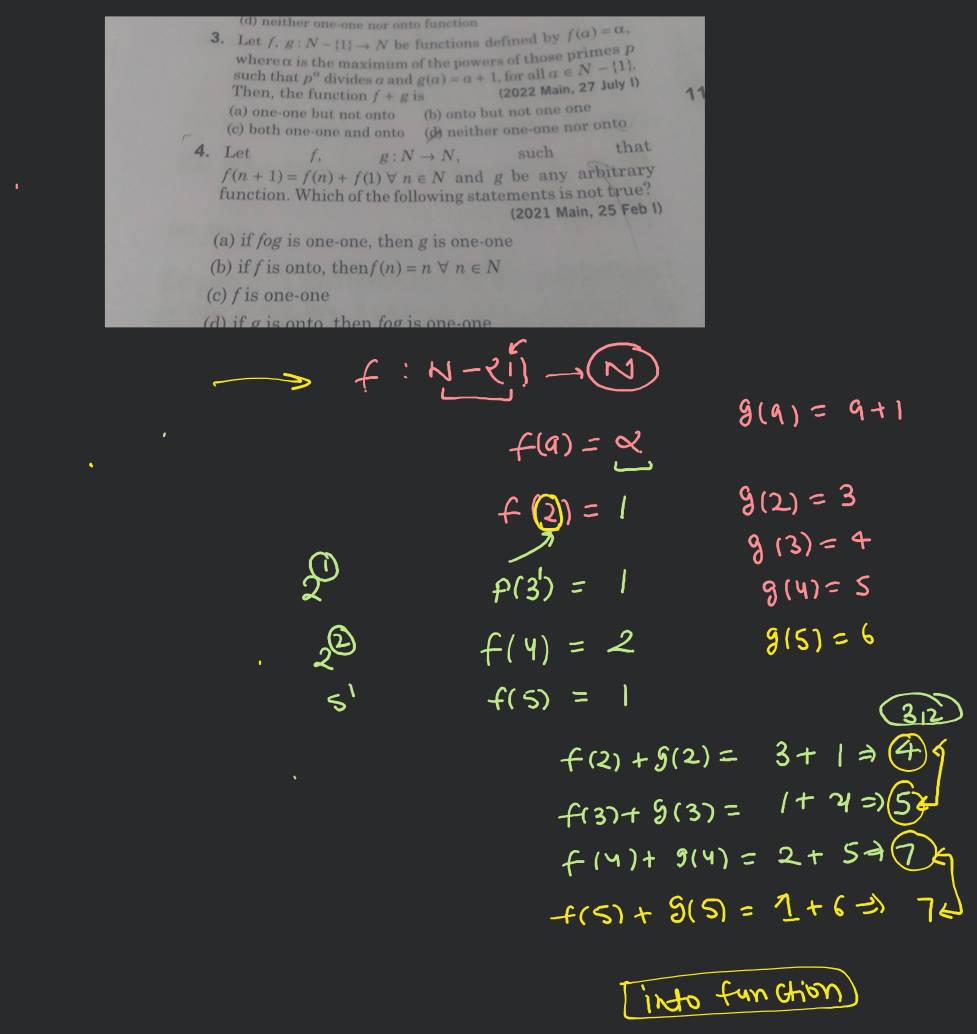 (d) neither one-one nor onto function
3. Let f, g : N – {1} → N be functions defined by f(a) = α,
where α is the maximum of the powers of those primes p
such that p^α divides a and g(a) = a + 1, for all a ∈ N – {1}.
Then, the function f + g is (2022 Main, 27 July I)
11
(a) one-one but not onto (b) onto but not one one
(c) both one-one and onto (d) neither one-one nor onto
4. Let f, g : N → N, such that
f(n + 1) = f(n) + f(1) ∀ n ∈ N and g be any arbitrary
function. Which of the following statements is not true?
(2021 Main, 25 Feb I)
(a) if fog is one-one, then g is one-one
(b) if f is onto, then f(n) = n ∀ n ∈ N
(c) f is one-one
(d) if g is onto, then fog is one-one
f : N – {1} → N
g(a) = a + 1
f(a) = α
f(2) = 1
g(2) = 3
g(3) = 4
2^1
f(3^1) = 1
g(4) = 5
2^2
f(4) = 2
g(5) = 6
5^1
f(5) = 1
3,2
f(2) + g(2) = 3 + 1 ⇒ 4
f(3) + g(3) = 1 + 4 ⇒ 5
f(4) + g(4) = 2 + 5 ⇒ 7
f(5) + g(5) = 1 + 6 ⇒ 7
into function